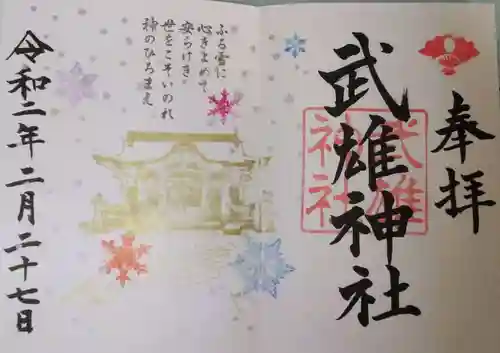 奉拝
武雄神社
武雄
神社
ふる雪に
心きよめて
安らけき
世をこそいのれ
神のひろまえ
令和二年二月二十七日